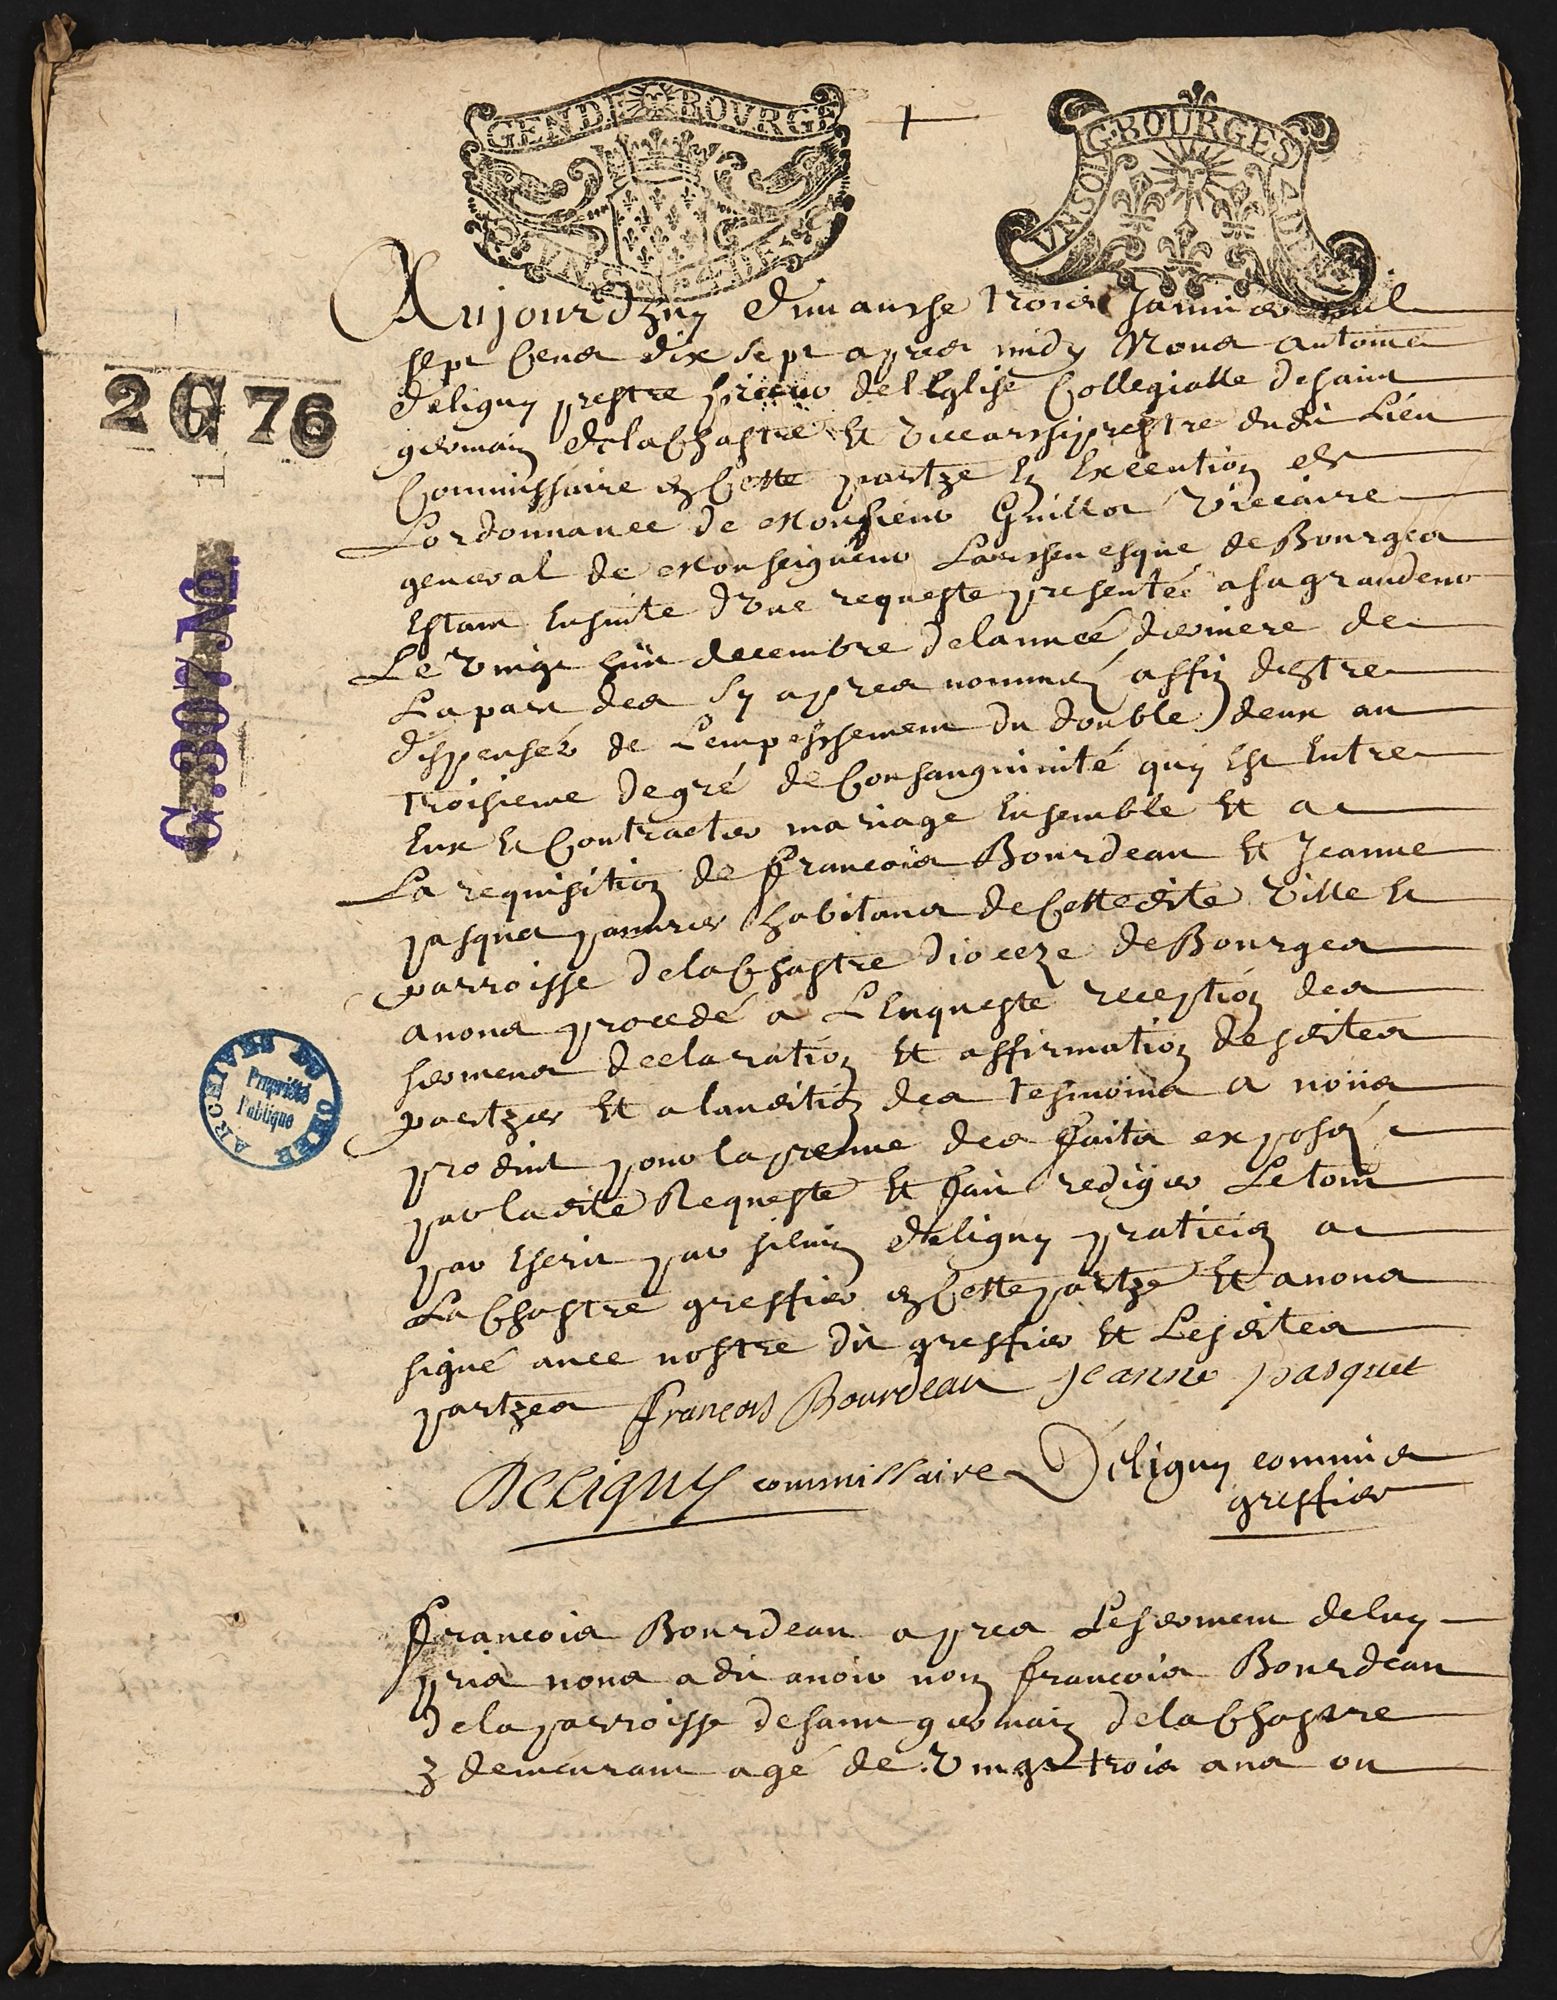 GEN DE BOURGE
UN S
DE
G. BOURGES
UN SOL
Aujourdhuy dimanche trois Januier mil
sept cens dix sept apres midy Nous antoine
deligny prestre prieur de lEglise Collegialle de saint
germain de la Chastre et vicearchiprestre dudit Lieu
2 G 76
Commissaire en Cette partye En Execution de
Lordonnance de Monsieur Guillot Viccaire
general de Monseigneur Larchevesque de Bourges
Estant Ensuite d'Une requeste presentée a sa grandeur
G. 307 No.
Le Vingt huit decembre de lannée derniere de
La part des Cy apres nommés affin destre
dispensés de Lempeschement du double deux au
troisieme degré de Consanguinité quy Est Entre
Eux et Contracter mariage Ensemble Et a
La requisition de francois Bourdeau Et Jeanne
pasquet habitans de Cette dite Ville Et
parroisse de la Chastre dioceze de Bourges
auons procedé a LEnqueste reception des
sermens declaration Et affirmation desdites
partyes Et a laudition des tesmoins a nous
ARCHIVES DU CHER
Propriété
Publique
produit pour la preuue des faits exposés
par ladite Requeste Et fait rediger Le tout
par Escrit par siluin deligny praticien a
La Chastre greffier en Cette partye Et auons
signé auec nostre dit greffier Et Lesdites
partyes francois Bourdeau Jeanne pasquet
Deligny commissaire Deligny commis
greffier
francois Bourdeau apres Le serment de luy
pris nous a dit auoir nom francois Bourdeau
de la parroisse de saint germain de la Chastre
y demeurant agé de Vingt trois ans ou